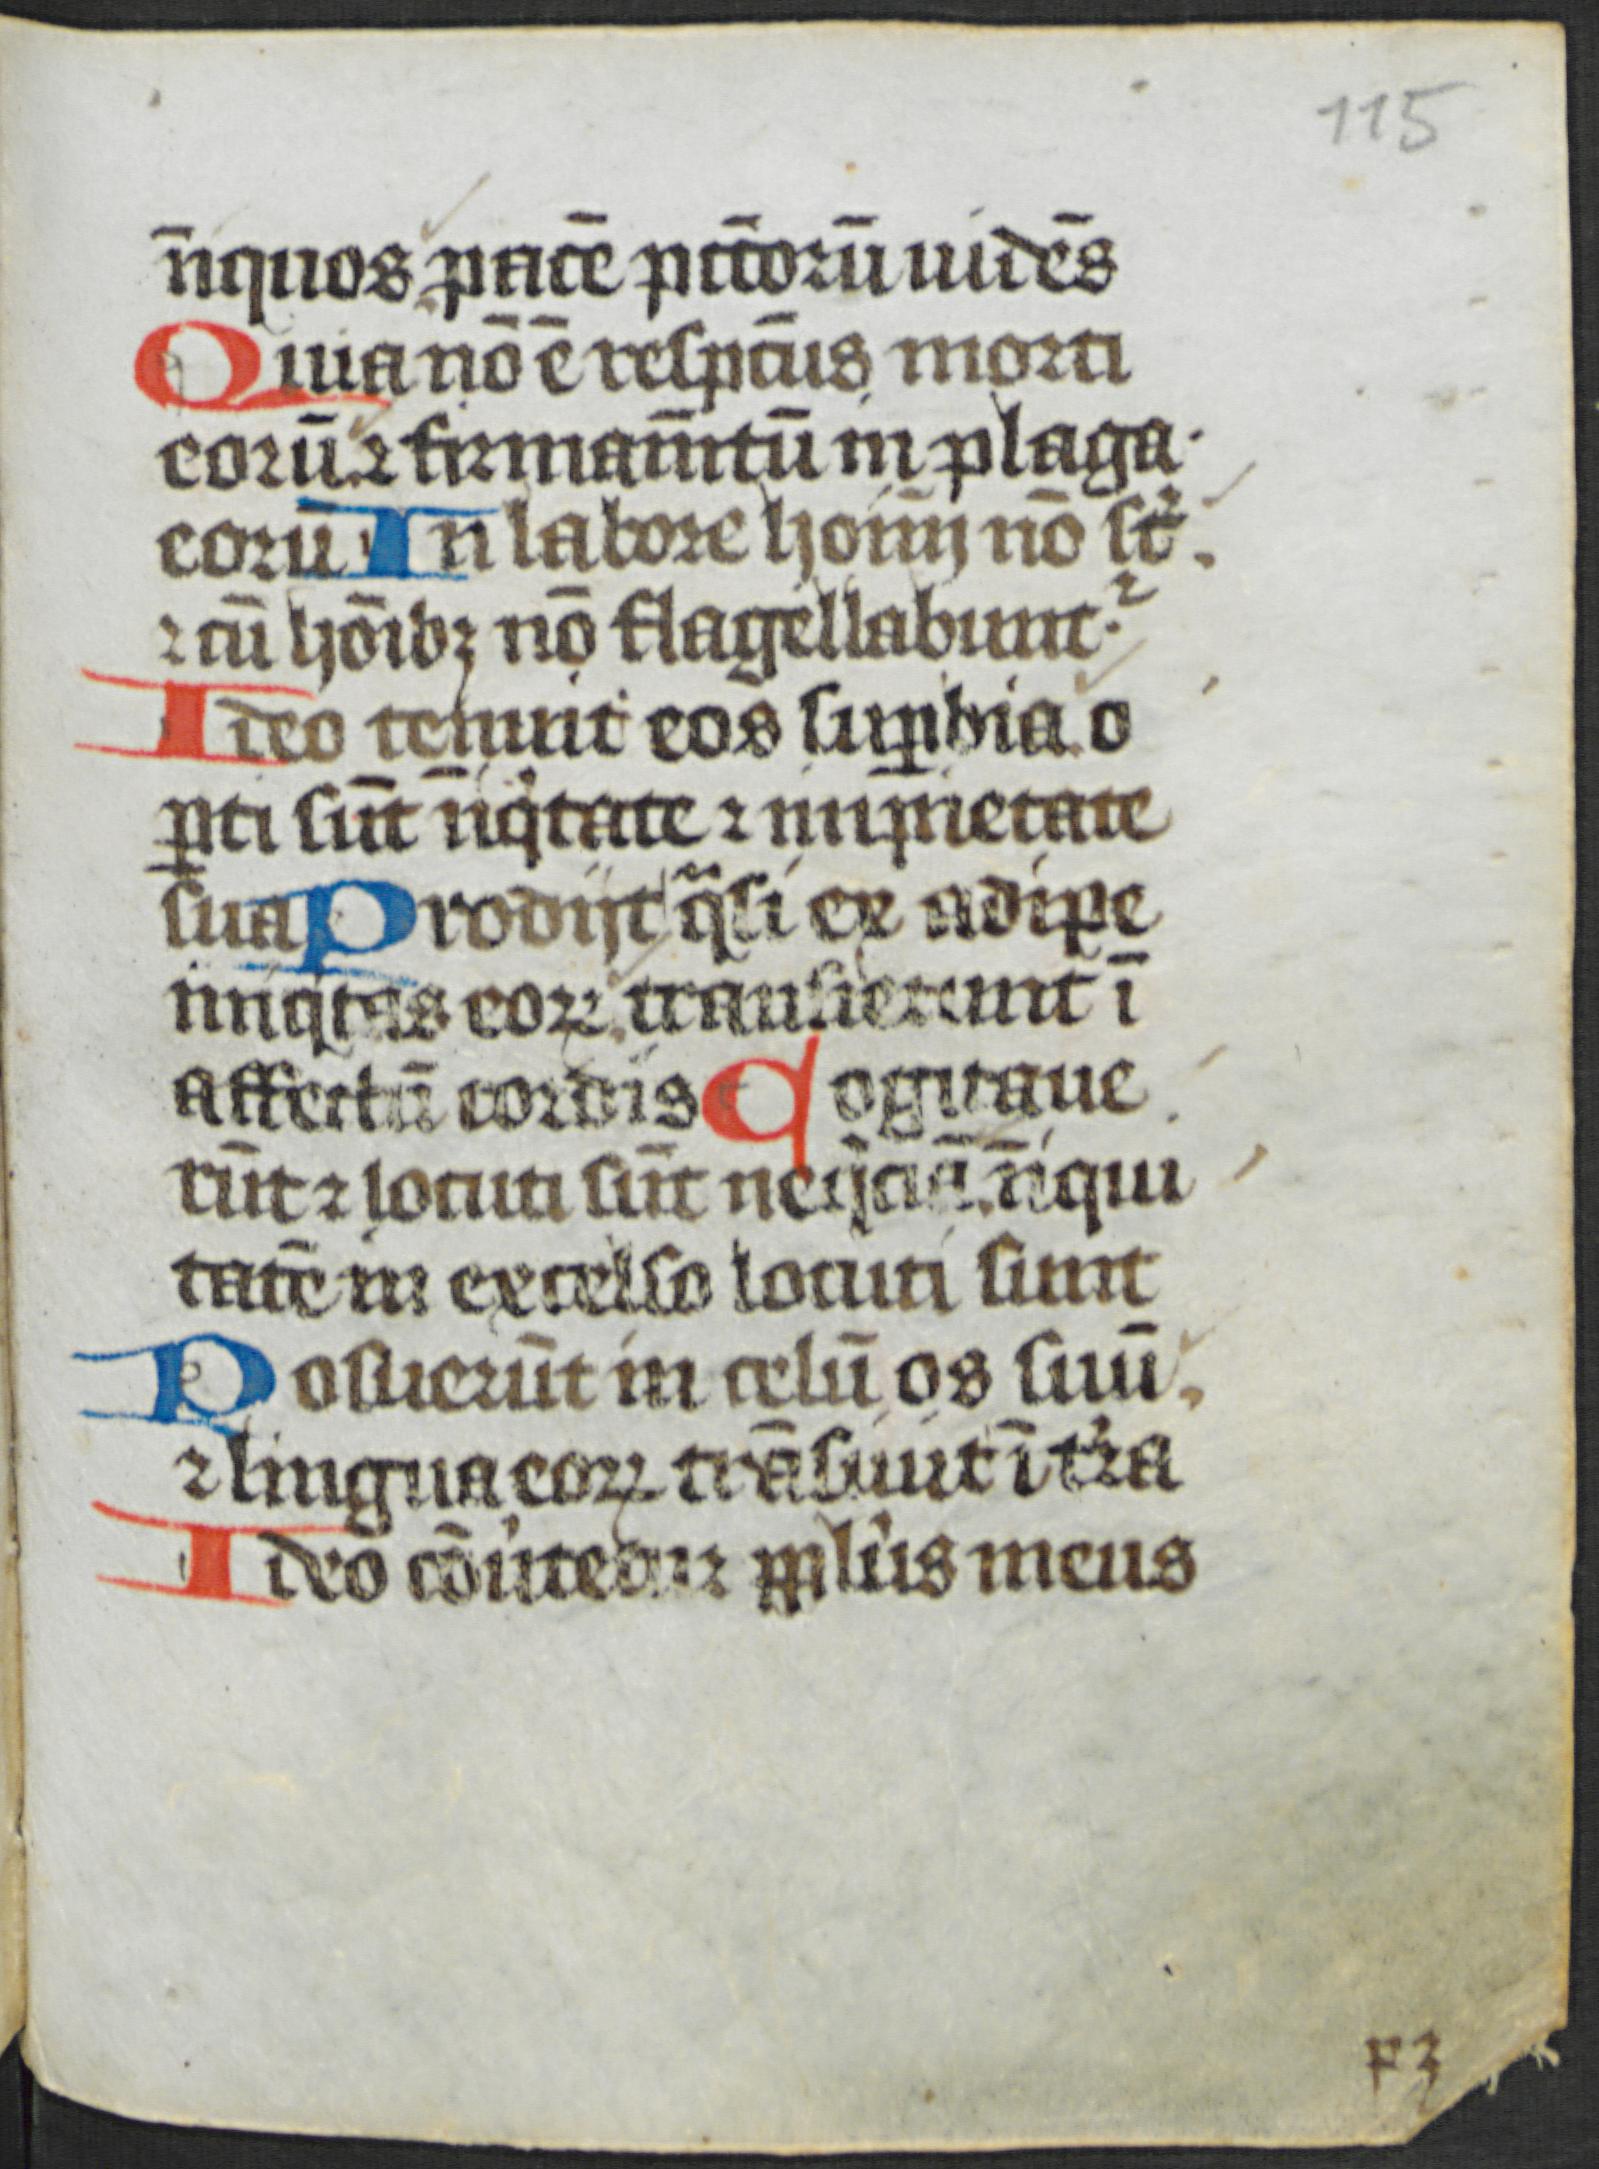 115
n̄iquos pacē pctōrū uidēs
Quia nō ē respc̄us morti
eorū ⁊ firmam̄tū in plaga
eoru In labore hoīnū nō st̄ᷣ.
⁊ cū hōibꝫ nō flagellabuntᷣ
Ideo tenuit eos suꝑbia o
ꝑti sūt n̄iqͥtate ⁊ impietate
sua Prodijt qᷓsi ex adipe
iniqͥtas eoꝝ transierunt ī
affectū cordis Cogitaue
rūt ⁊ locuti sūt neqͥciā n̄iqui
tatē in excelso locuti sunt
Posuerūt in celū os suū.
⁊ lingua eoꝝ trāsiuit ī t̓ra
Ideo cōu̓tet᷑ ppl̓us meus
F 3